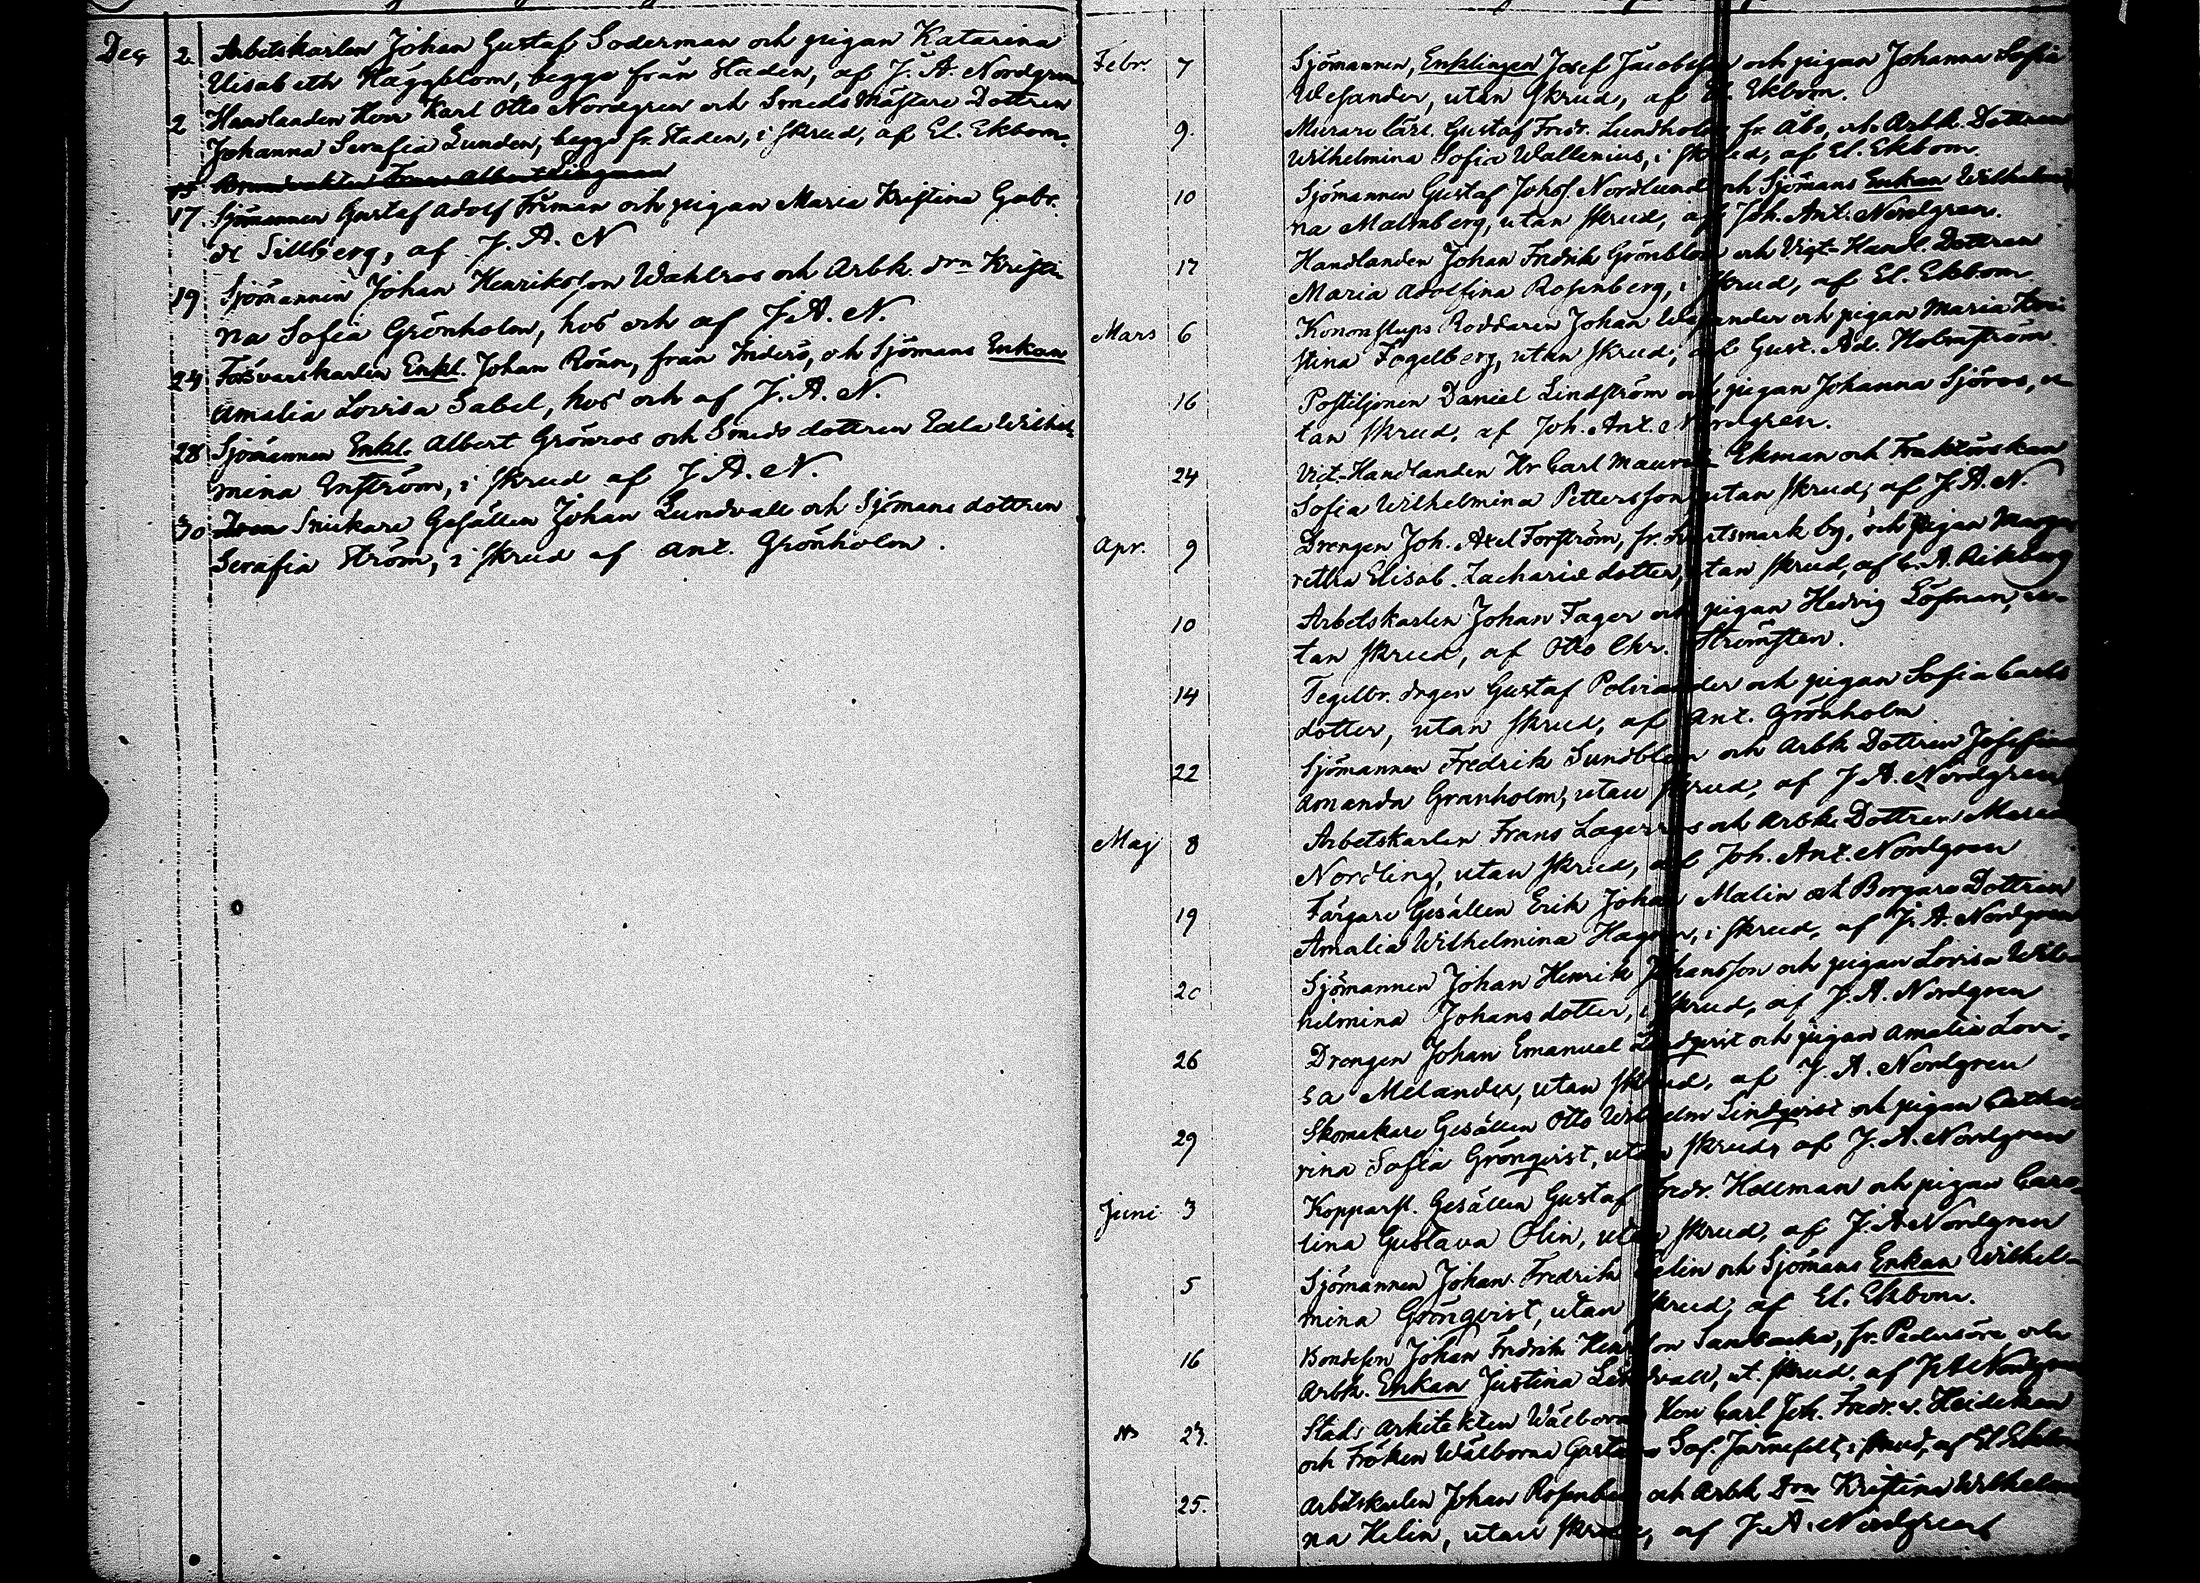 Dec 2. Arbetskarlen Johan Gustaf Soderman och pigan Katarina
Elisabeth Häggblom, begge från Staden, af J. A. Nordgren
2 Handlanden Herr Karl Otto Nordgren och Smeds Mästare Dottren
Johanna Serafia Lunden, begge fr. Staden, i skrud, af El. Ekbom.
15 Brandvakten Frans Albert
17. Sjömannen Gustaf Adolf Friman och pigan Maria Kristina Gabr.
Sillberg, af J. A. N
19 Sjömannen Johan Henriksson Wahlros och Arbk. drn Kristi-
na Sofia Grönholm, hos och af J. A. N.
24 Försvarskarlen Enkl. Johan Rönn, från, och Sjömans Enkan
Amalia Lovisa Sabel, hos och af J. A. N.
28 Sjömannen Enkl. Albert Grönros och Smeds dottren Edla Wilhel-
mina Enström, i skrud af J. A. N.
30 Snickare Gesällen Johan Lundvall och Sjömans dottren
Serafia Ström, i skrud af Ant. Grönholm.
Febr. 7 Sjömannen, Enklingen Josef Jacobsson och pigan Johanna Sofia
Wesander, utan skrud, af El. Ekbom.
9. Murare lärl. Gustaf Fredr. Lundholm fr. Åbo, och Arbk. Dottren
Wilhelmina Sofia Wallenius, i skrud, af El. Ekbom.
10 Sjömannen Gustaf Johs. Nordlund och Sjömans Enkan Wilhelmi-
na Malmberg, utan skrud, af Joh. Ant. Nordgren.
17 Handlanden Johan Fredrik Grönblom och Vict-Handl. Dottren
Maria Adolfina Rosenberg, i skrud, af El. Ekbom
Mars 6 Roddaren Johan Wesander och pigan Maria Kri-
stina Fogelberg, utan skrud, af Gust. Ad. Holmström
16 Postiljonen Daniel Lindström och pigan Johanna Sjöros, u-
tan skrud, af Joh. Ant. Nordgren.
24 Vict-Handlanden Hr Carl Mauritz Ekman och Traktörskan
Sofia Wilhelmina Pettersson utan skrud, af J. A. N.
Apr. 9 Drengen Joh. Axel Forström, fr. by, och pigan Marga-
retha Elisab. Zacharie dotter, utan skrud, af
10 Arbetskarlen Johan Fager och pigan Hedvig Löfman, u-
tan skrud, af Otto Chr. Strömsten.
14 Tegelbr. drgen Gustaf Polviander och pigan Sofia Carls
dotter, utan skrud, af Ant. Grönholm
22 Sjömannen Fredrik Sundblom och Arbk Dottren Josefina
Amanda Granholm, utan skrud, af J. A. Nordgren
Maj 8 Arbetskarlen Frans Lagerros och Arbk. Dottren Maria
Nordling, utan skrud, af Joh. Ant. Nordgren
19 Färgare Gesällen Erik Johan Malin och Borgare Dottren
Amalia Wilhelmina Hagman, i skrud, af J. A. Nordgren
20 Sjömannen Johan Henrik Johansson och pigan Lovisa Wil-
helmina Johans dotter, i skrud, af J. A. Nordgren
26 Drengen Johan Emanuel Lindqvist och pigan Amalia Lovi-
sa Melander, utan skrud, af J. A. Nordgren
29 Skomakare Gesällen Otto Wilhelm Lindqvist och pigan Catha-
rina Sofia Grönqvist, utan skrud, af J. A. Nordgren
Juni 3 Kopparsl. Gesällen Gustaf Fredr. Hellman och pigan Caro-
lina Gustava Olin, utan skrud, af J. A. Nordgren
5 Sjömannen Johan Fredrik och Sjömans Enkan Wilhel-
mina Grönqvist, utan skrud, af El. Ekbom.
16 Bondeson Johan Fredrik Sandbacka, fr. Pedersöre och
Arbk. Enkan Justina Lindvall, ut. skrud, af J. A. Nordgren
23. Stads Arkitekten Wälborne Herr Carl Joh. Fredr. v. Heideken
och Fröken Wälborna Gustava Sof. Järnefelt, i skrud, af El Ekbom
25. Arbetskarlen Johan Rosenberg och Arbk Drn Kristina Wilhelmi-
na Helin, utan skrud, af J. A. Nordgren